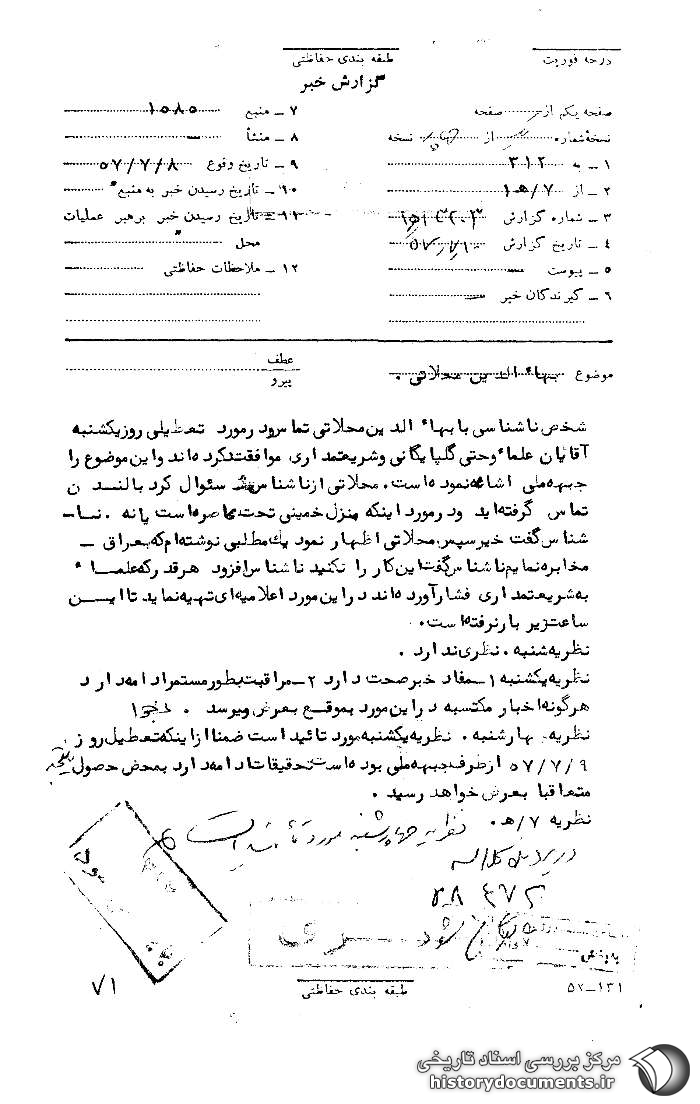 درجه فوریت
طبقه بندی حفاظتی
گزارش خبر
صفحه یکم از صفحه
نسخه شماره از نسخه
۱ ـ به ۳۱۲
۲ ـ از ۷/ه۱
۳ ـ شماره گزارش
۴ ـ تاریخ گزارش
۵ ـ پیوست
۶ ـ گیرندگان خبر
۷ ـ منبع ۱۰۸۵
۸ ـ منشأ
۹ ـ تاریخ وقوع ۵۷/۷/۸
۱۰ ـ تاریخ رسیدن خبر به منبع
۱۱ ـ تاریخ رسیدن خبر برهبر عملیات
محل
۱۲ ـ ملاحظات حفاظتی
عطف
پیرو
موضوع بهاء الدین محلاتی .
شخص ناشناسی با بهاء الدین محلاتی تماس و در مورد تعطیلی روز یکشنبه
آقایان علماء وحتی گلپایگانی وشریعتمداری موافقت نکرده اند و این موضوع را
جبهه ملی اشاعه نموده است. محلاتی از ناشناس سئوال کرد با لندن
تماس گرفته اید و در مورد اینکه منزل خمینی تحت محاصره است یا نه . نا‌ـ
شناس گفت خیر سپس محلاتی اظهار نمود یك مطلبی نوشته ام که بعراق ـ
مخابره نمایم ناشناس گفت این کار را نکنید ناشناس افزود هر قدر که علماء
به شریعتمداری فشار آورده اند در این مورد اعلامیه ای تهیه نماید تا ایـن
ساعت زیر بار نرفته است.
نظریه شنبه . نظری ندارد .
نظریه یکشنبه ۱ـ مفاد خبر صحت دارد ۲ـ مراقبت بطور مستمر ادامه دارد
هرگونه اخبار مکتسبه در این مورد بموقع بعرض میرسد .
نظریه چهارشنبه . نظریه یکشنبه مورد تائید است ضمنا از اینکه تعطیل روز
۵۷/۷/۹ از طرف جبهه ملی بوده است تحقیقات ادامه دارد بمحض حصول نتیجه
متعاقبا بعرض خواهد رسید .
نظریه ۷/ه . نظریه چهارشنبه مورد تائید است
۷۱
طبقه بندی حفاظتی
۵۲ـ۱۳۱
مرکز بررسی اسناد تاریخی
historydocuments.ir